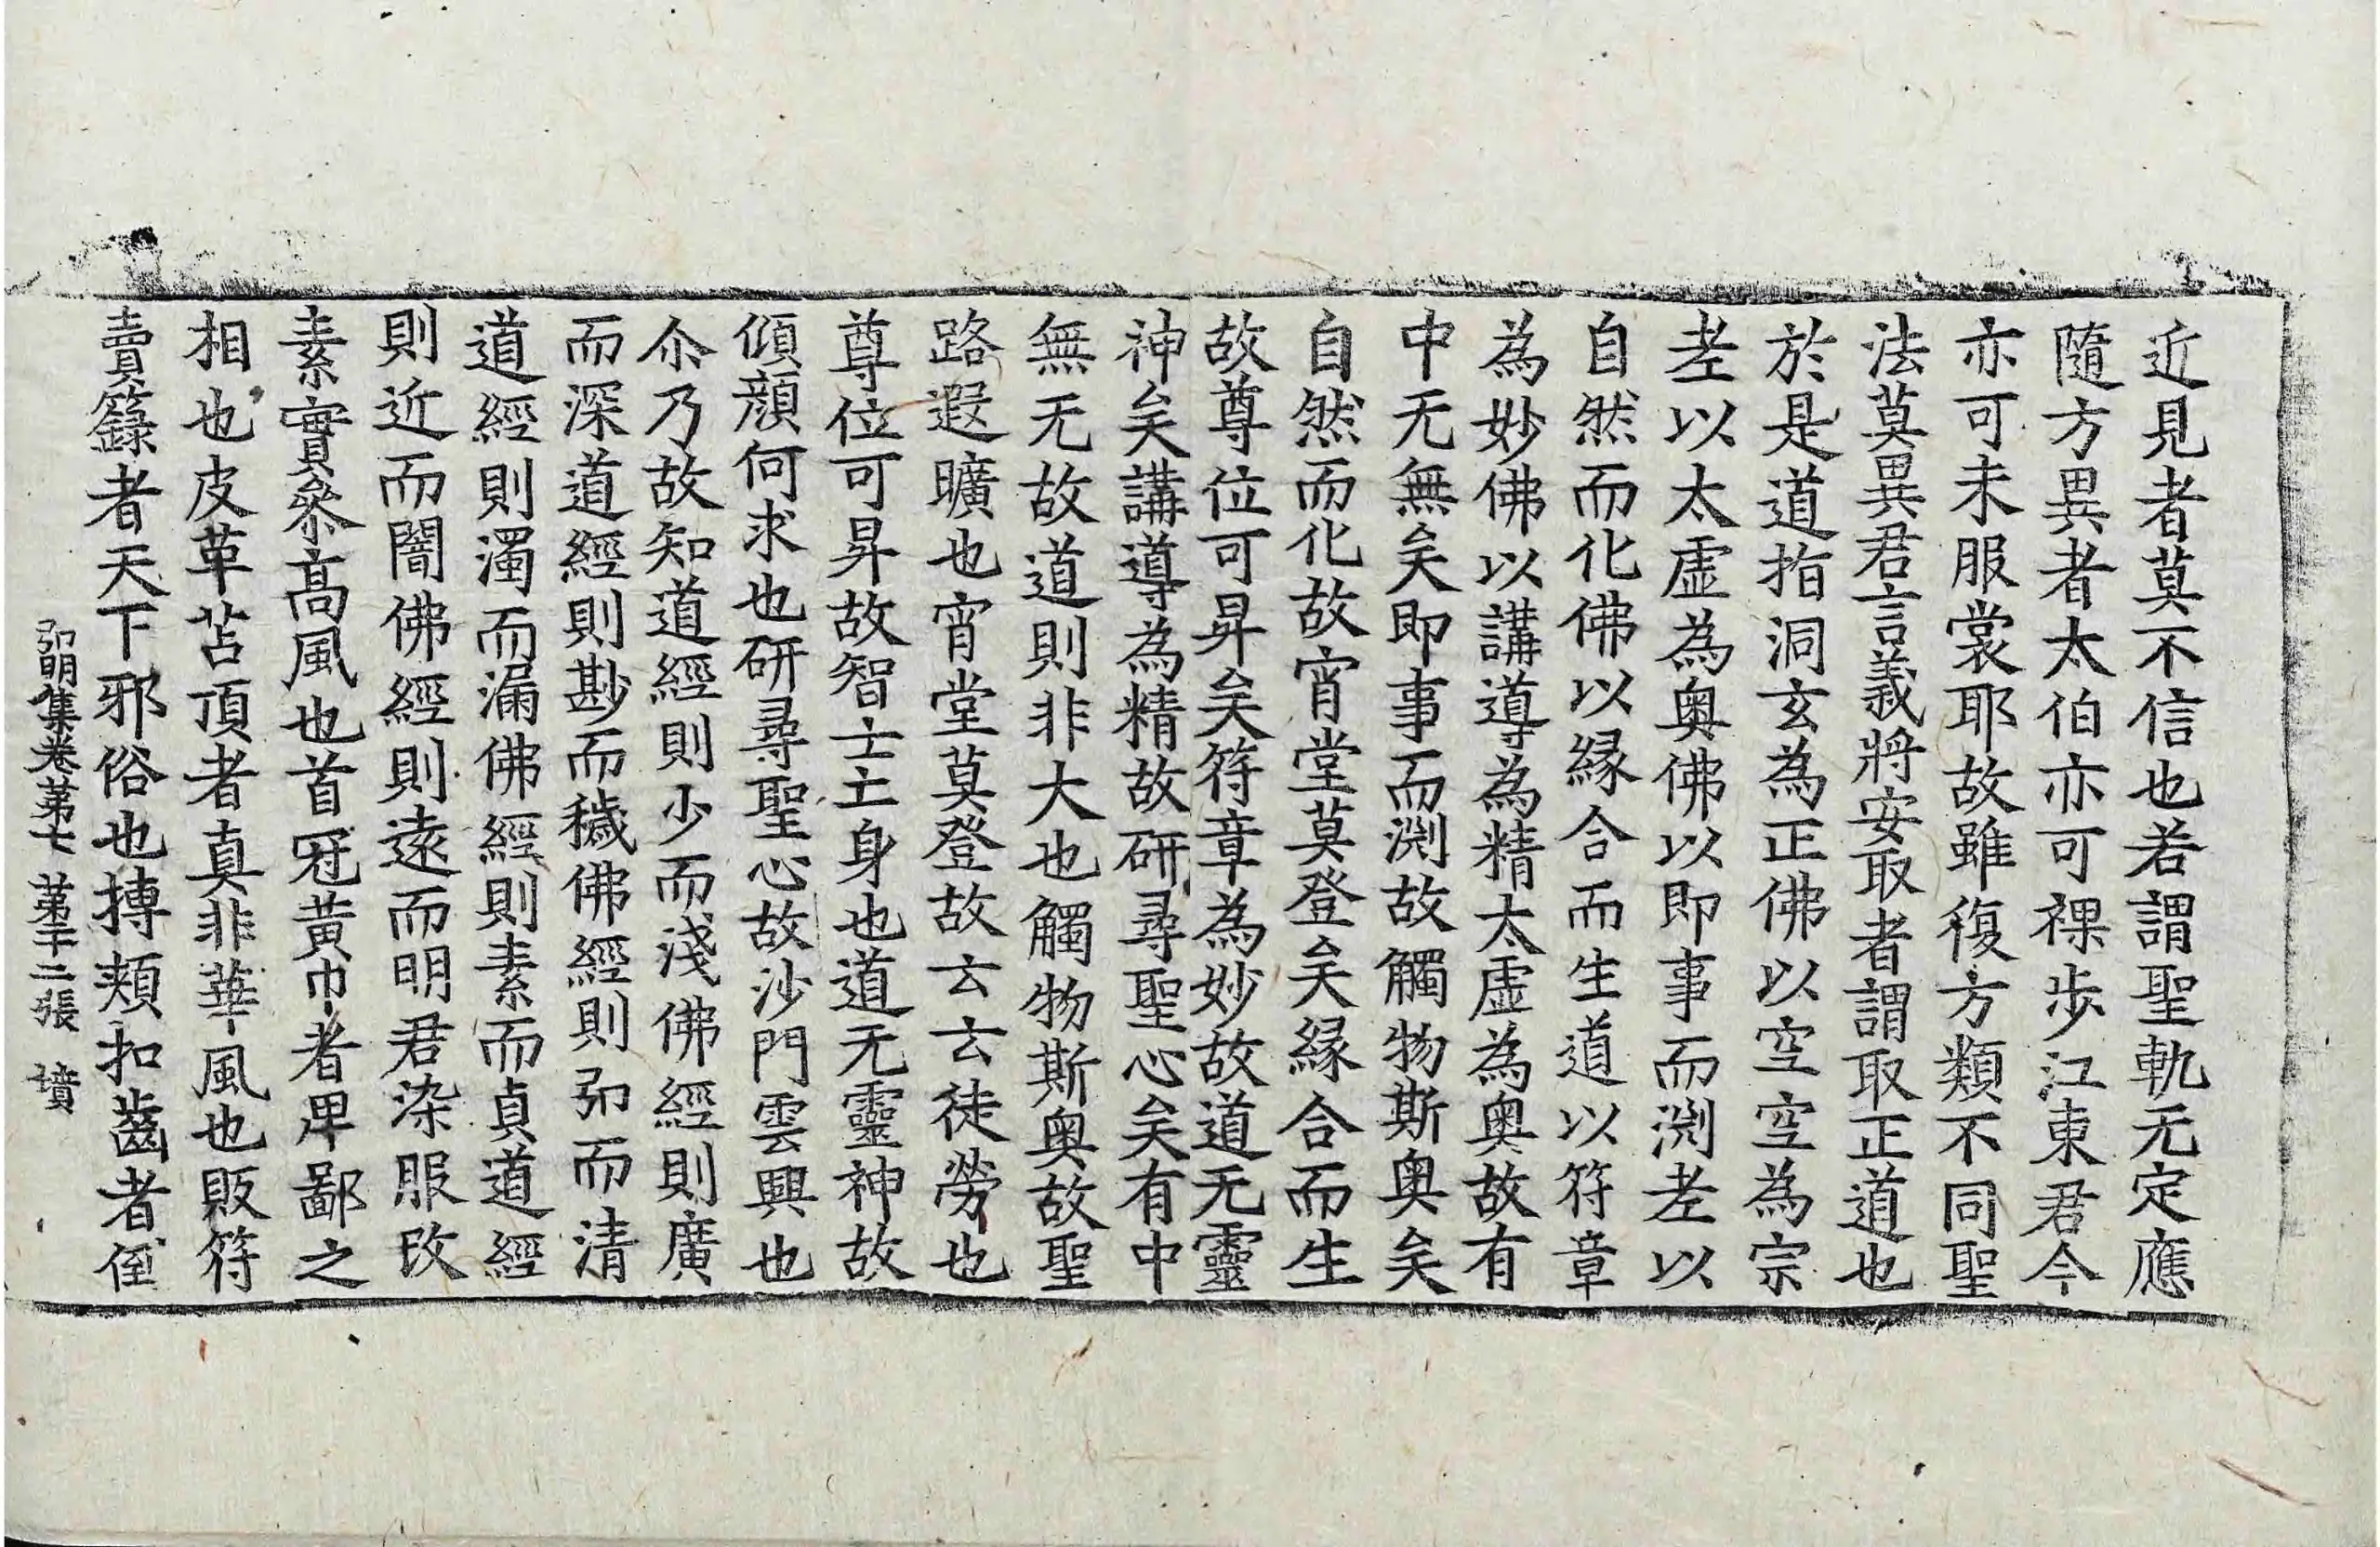 近見者莫不信也若謂聖軌无定應
隨方異者太伯亦可裸步江東君今
亦可未服裳耶故雖復方類不同聖
法莫異君言義將安取者謂取正道也
於是道指洞玄為正佛以空空為宗
老以太虛為奧佛以即事而渕老以
自然而化佛以緣合而生道以符章
為妙佛以講導為精太虛為奧故有
中无無矣即事而渕故觸物斯奧矣
自然而化故宵堂莫登矣緣合而生
故尊位可昇矣符章為妙故道无靈
神矣講導為精故研尋聖心矣有中
無无故道則非大也觸物斯奧故聖
路遐曠也宵堂莫登故云云徒勞也
尊位可昇故智士亡身也道无靈神故
傾顏何求也研尋聖心故沙門雲興也
尒乃故知道經則少而淺佛經則廣
而深道經則尠而穢佛經則弘而清
道經則濁而漏佛經則素而貞道經
則近而闇佛經則遠而明君染服改
素實叅高風也首冠黃巾者卑鄙之
相也皮革苫頂者真非華風也販符
賣籙者天下邪俗也搏頰扣齒者倒
弘明集卷第七 第十二張 墳